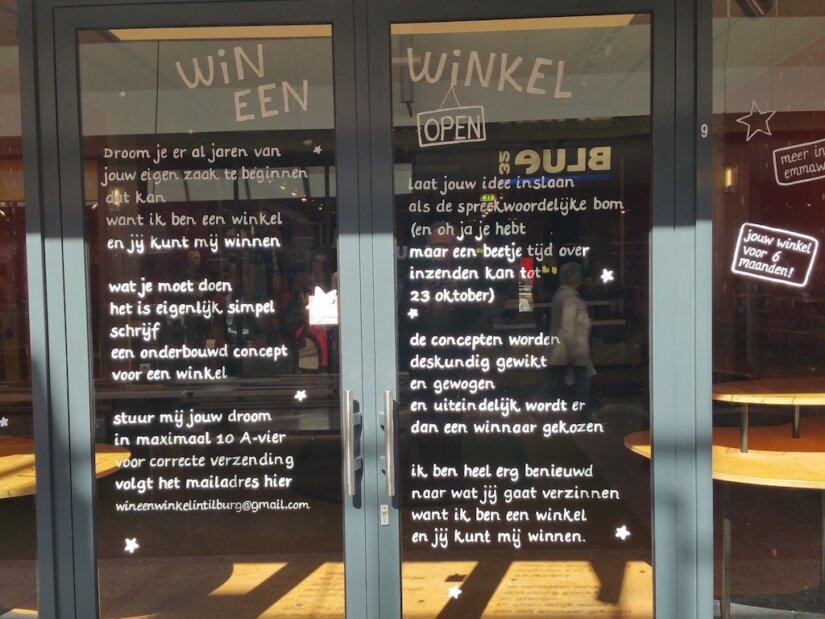 WiN
EEN
Droom je er al jaren van
jouw eigen zaak te beginnen
dat kan
want ik ben een winkel
en jij kunt mij winnen
wat je moet doen
het is eigenlijk simpel
schrijf
een onderbouwd concept
voor een winkel
stuur mij jouw droom
in maximaal 10 A-vier
voor correcte verzending
volgt het mailadres hier
wineenwinkelintilburg@gmail.com
WiNKEL
OPEN
BLUE
laat jouw idee inslaan
als de spreekwoordelijke bom
(en oh ja je hebt
maar een beetje tijd over
inzenden kan tot
23 oktober)
de concepten worden
deskundig gewikt
en gewogen
en uiteindelijk wordt er
dan een winnaar gekozen
ik ben heel erg benieuwd
naar wat jij gaat verzinnen
want ik ben een winkel
en jij kunt mij winnen.
9
meer in
emmaw
jouw winkel
voor 6
maanden!